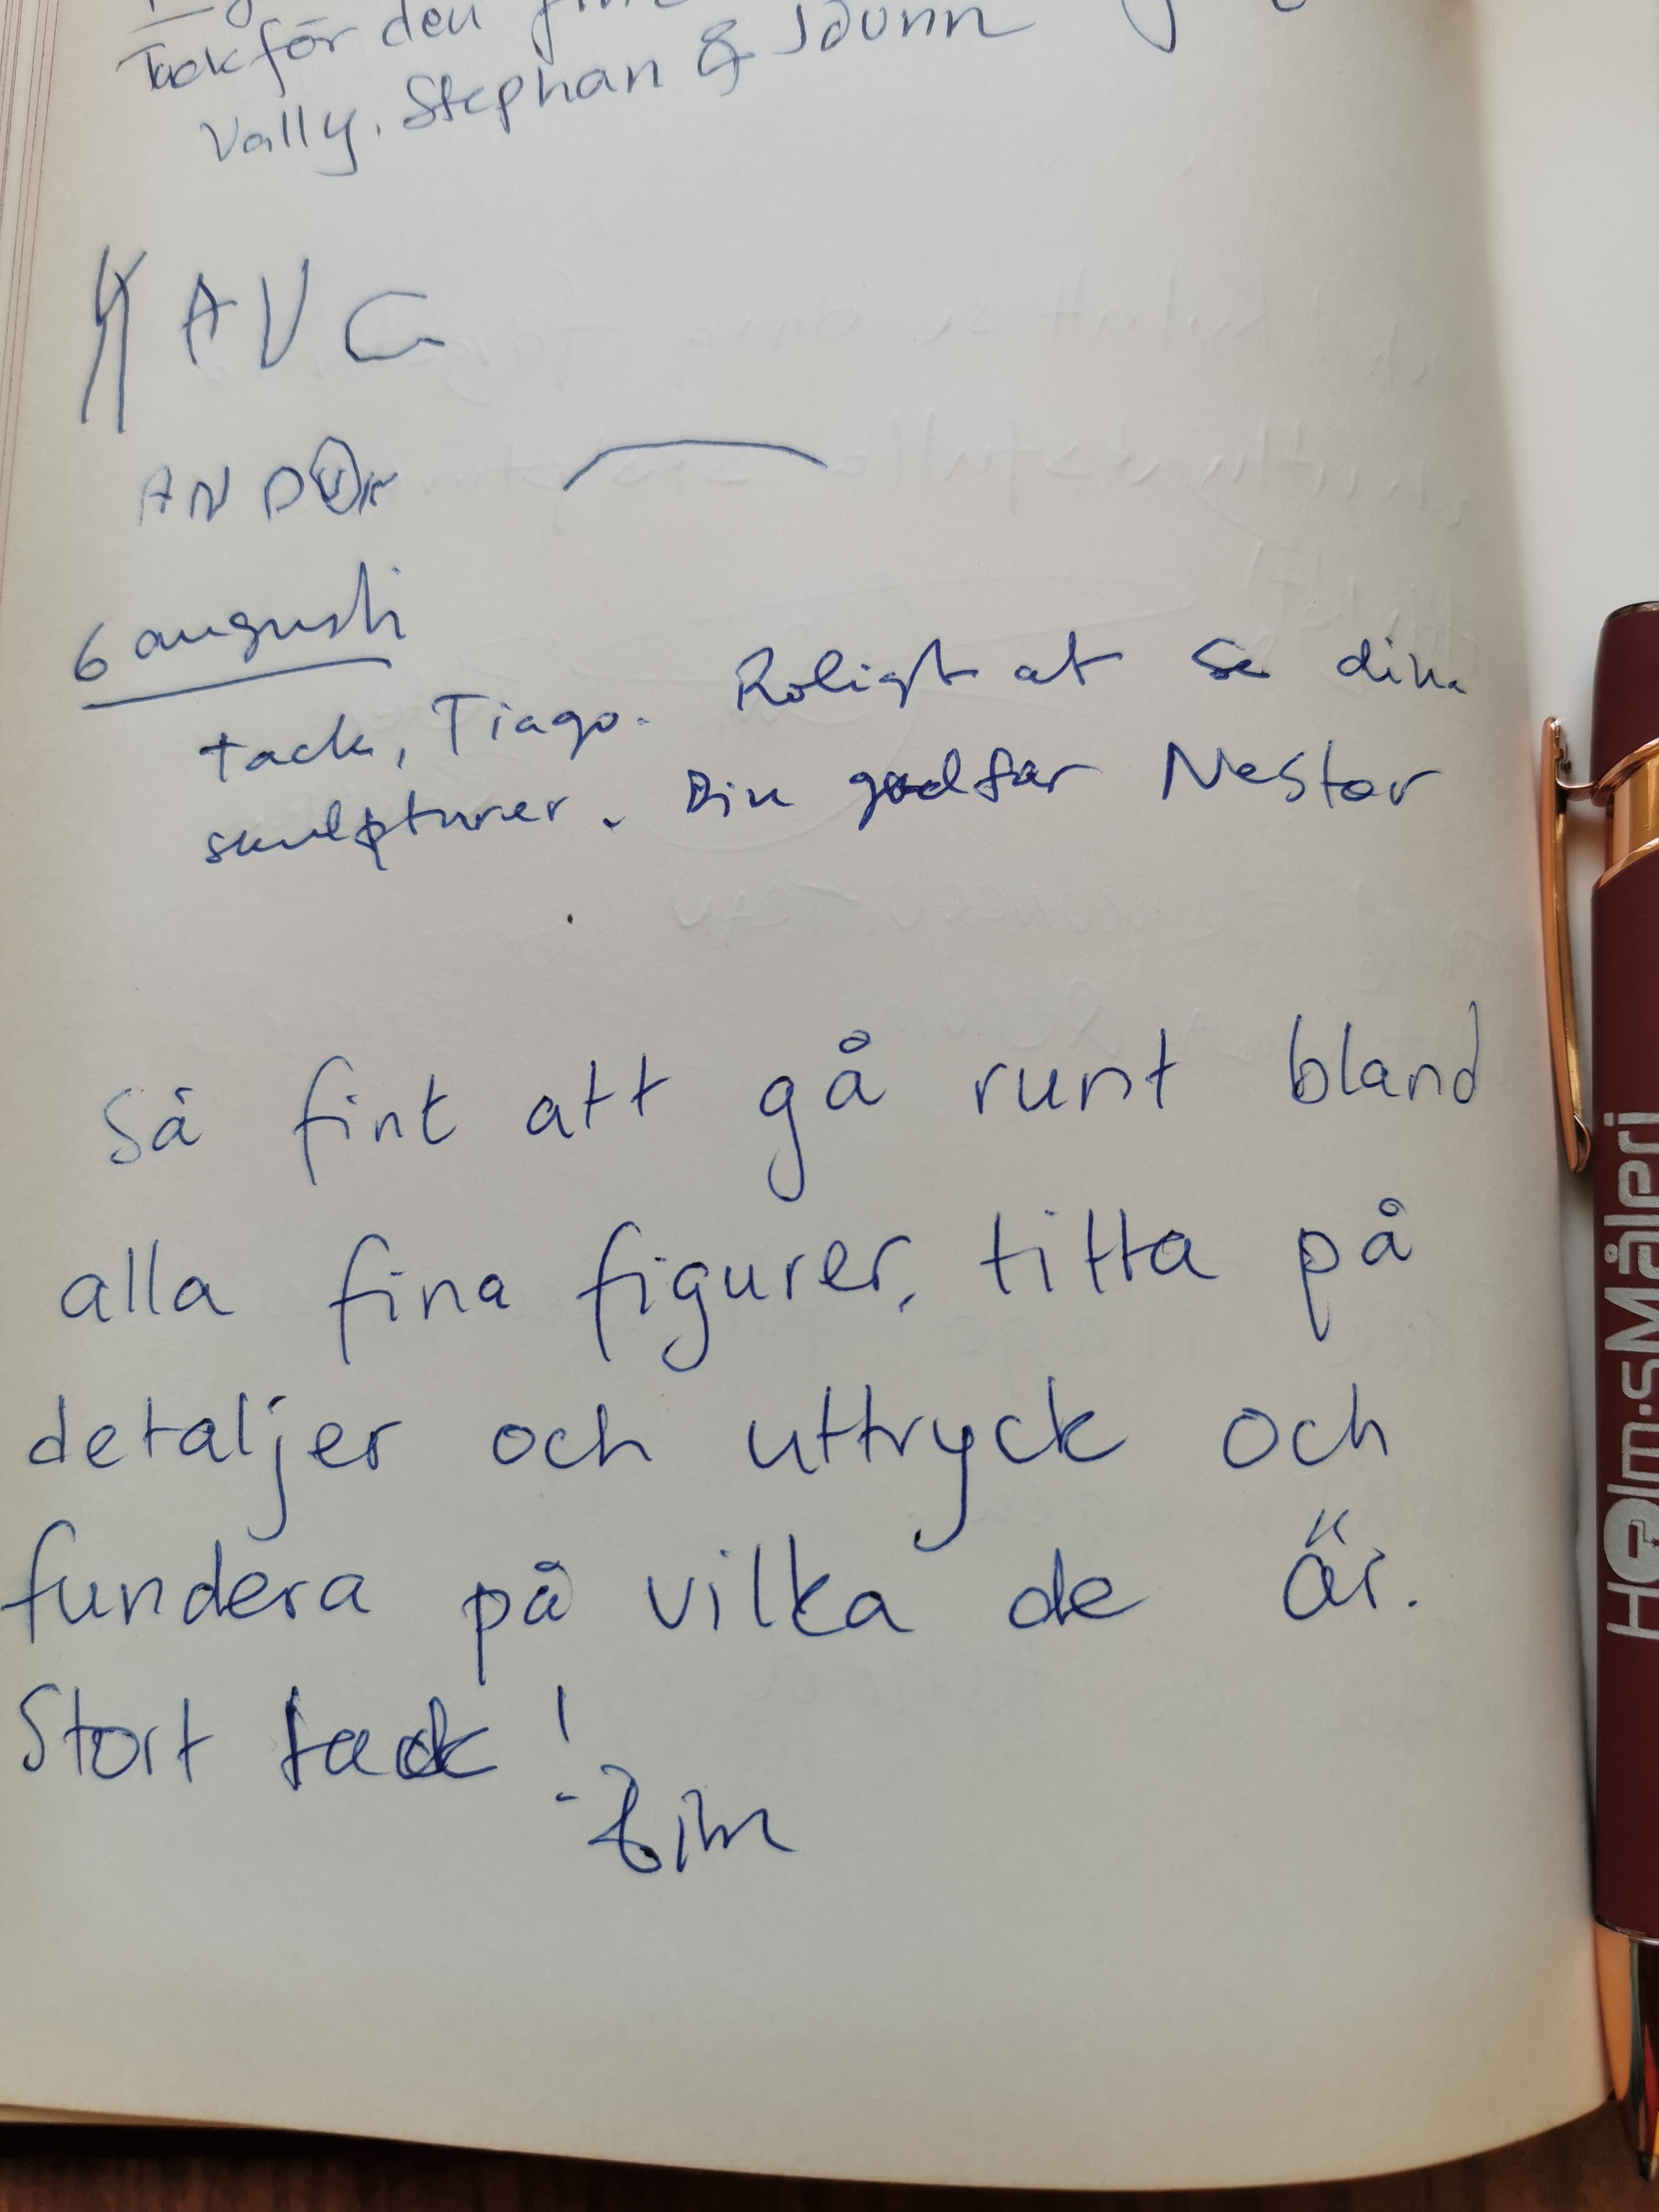 Tack för den
Vally, Stephan & Idunn
6 augusti
tack, Tiago. Roligt at se dina
skulpturer. Din gudfar Nestor
Så fint att gå runt bland
alla fina figurer, titta på
detaljer och uttryck och
fundera på vilka de är.
Stort tack!
Holm·sMåleri